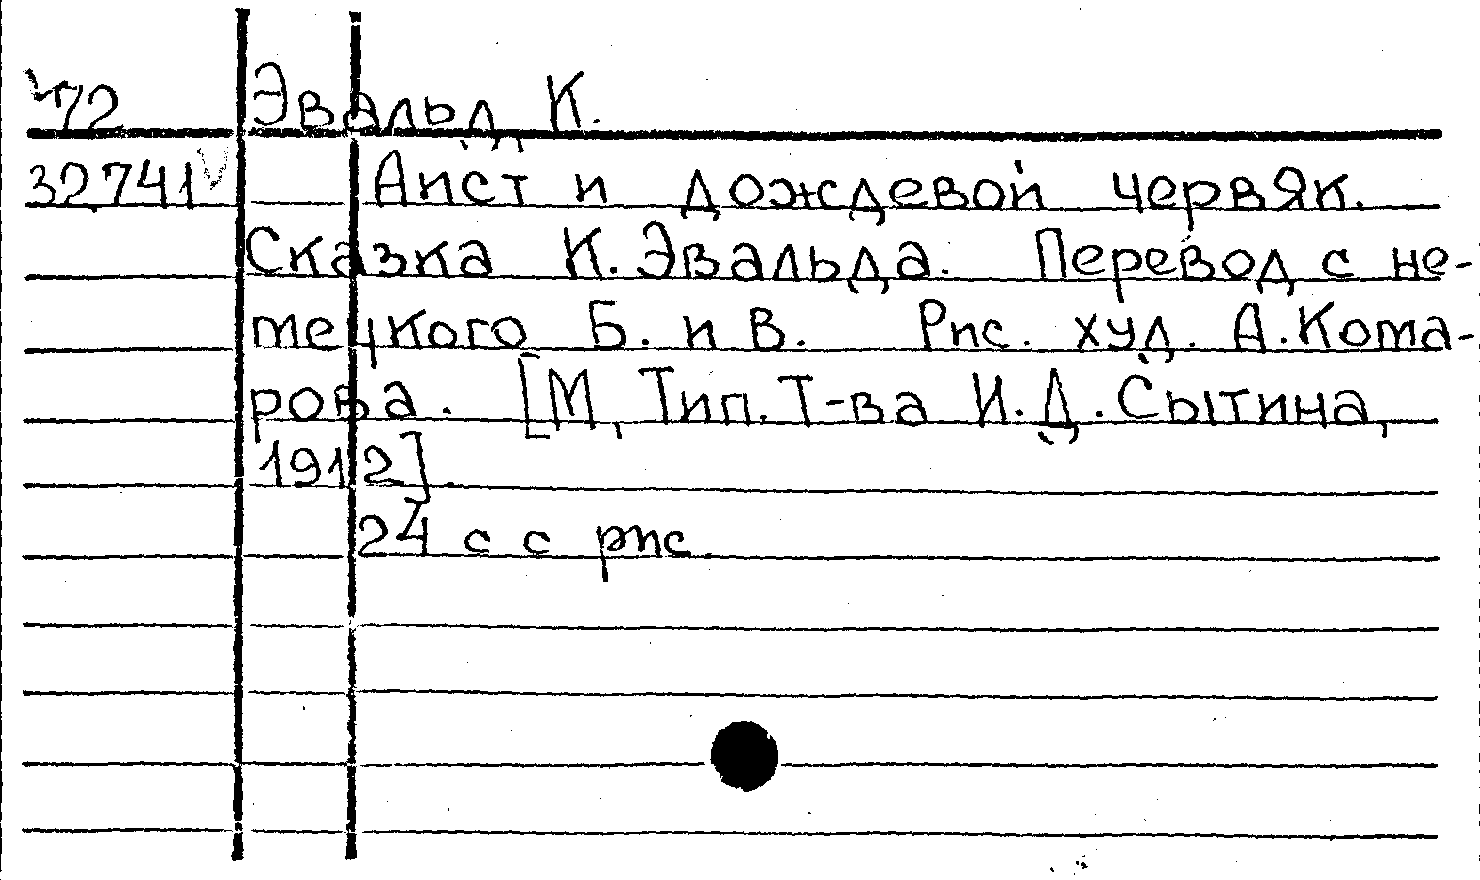 72 Эвальд К.
32741 Аист и дождевой червяк.
Сказка К. Эвальда. Перевод с не-
мецкого Б. и В. Рис. худ. А. Кома-
рова. [М, Тип. Т-ва И.Д. Сытина,
1912].
24 с с рис.